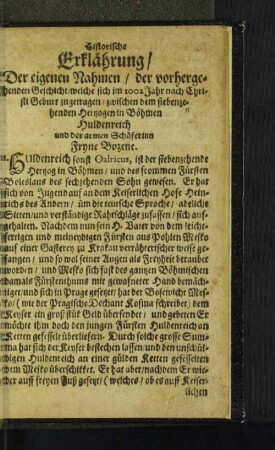 Historische
Erklährung/
Der eigenen Nahmen/ der vorherge-
henden Geschicht/welche sich im 1002 Jahr nach Chri-
sti Geburt zugetragen/zwischen dem siebenze-
henden Hertzogen in Böhmen
Huldenreich
und der armen Schäferinn
Fryne Bozene.
Huldenreich sonst Oalricus, ist der siebenzehende
Hertzog in Böhmen/ und des frommen Fürsten
Boleslaus des sechzehenden Sohn gewesen. Er hat
sich von Jugend auf an dem Keiserlichen Hofe Hein-
reichs des Andern/ üm die teutsche Sprache/ adeliche
Sitten/und verständige Rahtschläge zufassen/ sich auf-
gehalten. Nachdem nun sein H. Vater von dem leicht-
fertigen und meineydigen Fürsten aus Pohlen Mesko
auf einer Gasterey zu Krakau verrähterischer weise ge-
fangen/ und so wol seiner Augen als Freyheit beraubet
worden/ und Mesko sich fast des gantzen Böhmischen
damals Fürstenthums mit gewafneter Hand bemäch-
tiget/und sich in Prage gesetzet/hat der Bosewicht Mes-
ko/ (wie der Pragische Dechant Kosma schreibe) dem
Keyser ein groß stük Geld übersendet/ und gebeten Er
möchte ihm doch den jungen Fürsten Huldenreich an
Ketten gefesselt überliefern. Durch solche grosse Sum-
ma hat sich der Keyser bestechen lassen/und den unschül-
digen Huldenreich an einer gülden Ketten gefesselten
dem Mesko überschikket. Er hat aber/nachdem Er wie-
der auff freyen Fuß gesetzt/ ( welches/ ob es auff Keiser-
lichen